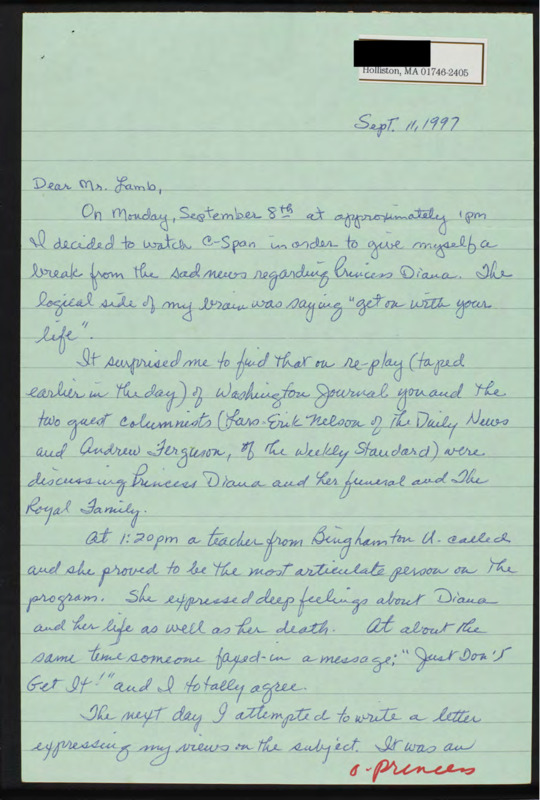 Holliston, MA 01746-2405
Sept. 11, 1997
Dear Mr. Lamb,
On Monday, September 8th at approximately 1pm
I decided to watch C-Span in order to give myself a
break from the sad news regarding Princess Diana. The
logical side of my brain was saying "get on with your
life".
It surprised me to find that on re-play (taped
earlier in the day) of Washington Journal you and the
two guest columnists (Lars-Erik Nelson of the Daily News
and Andrew Ferguson, of the Weekly Standard) were
discussing Princess Diana and her funeral and The
Royal Family.
At 1:20pm a teacher from Binghamton U. called
and she proved to be the most articulate person on the
program. She expressed deep feelings about Diana
and her life as well as her death. At about the
same time someone faxed-in a message; "Just Don't
Get It!" and I totally agree.
The next day I attempted to write a letter
expressing my views on the subject. It was an
Princess